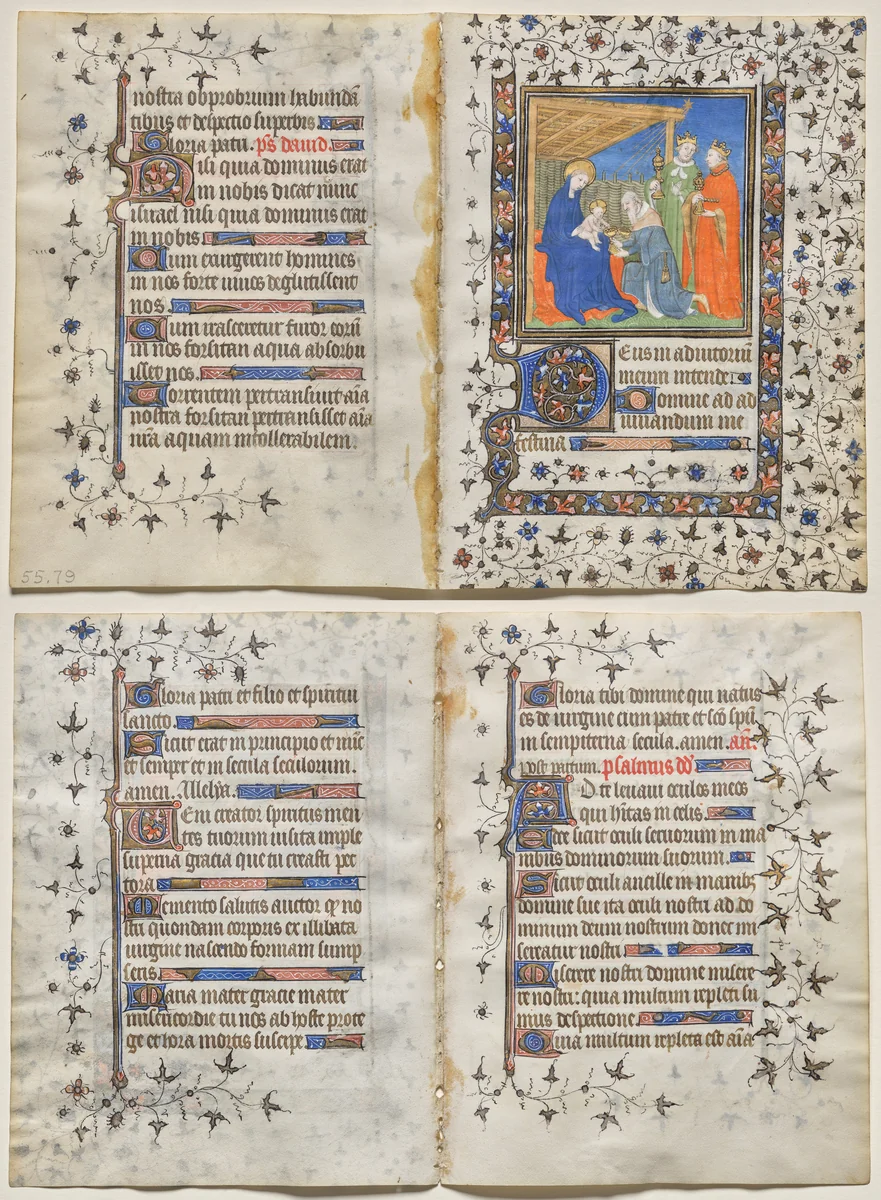 nostra obprobrium habundā
tibus et despectio superbis
Gloria patri. ps̄ david.
Nisi quia dominus erat
in nobis dicat nunc
israel nisi quia dominus erat
in nobis
Cum exurgerent homines
in nos forte vivos deglutissent
nos.
Cum irasceretur furor eorū
in nos forsitan aqua absorbu
isset nos.
Torrentem pertransivit aīa
nostra forsitan pertransisset aīa
nr̄a aquam intollerabilem.
55.79
Deus in adiutoriū
meum intende.
Domine ad ad
iuvandum me
festina
Gloria patri et filio et spiritui
sancto.
Sicut erat in principio et nūc
et semper et in secula seculorum.
amen. Allelȳa.
Veni creator spiritus men
tes tuorum visita imple
superna gracia que tu creasti pec
tora
Memento salutis auctor qꝫ no
stri quondam corporis ex illibata
virgine nascendo formam sump
seris.
Maria mater gracie mater
misericordie tu nos ab hoste prote
ge et hora mortis suscipe
Gloria tibi domine qui natus
es de virgine cum patre et scō spū
in sempiterna secula. amen. an̄.
post partum. psalmus dd̄
Ad te levavi oculos meos
qui hītas in celis.
Ecce sicut oculi servorum in ma
nibus dominorum suorum.
Sicut oculi ancille in manibꝫ
domine sue ita oculi nostri ad do
minum deum nostrum donec mi
sereatur nostri
Miserere nostri domine misere
re nostri: quia multum repleti su
mus despectione.
Quia multum repleta est aīa